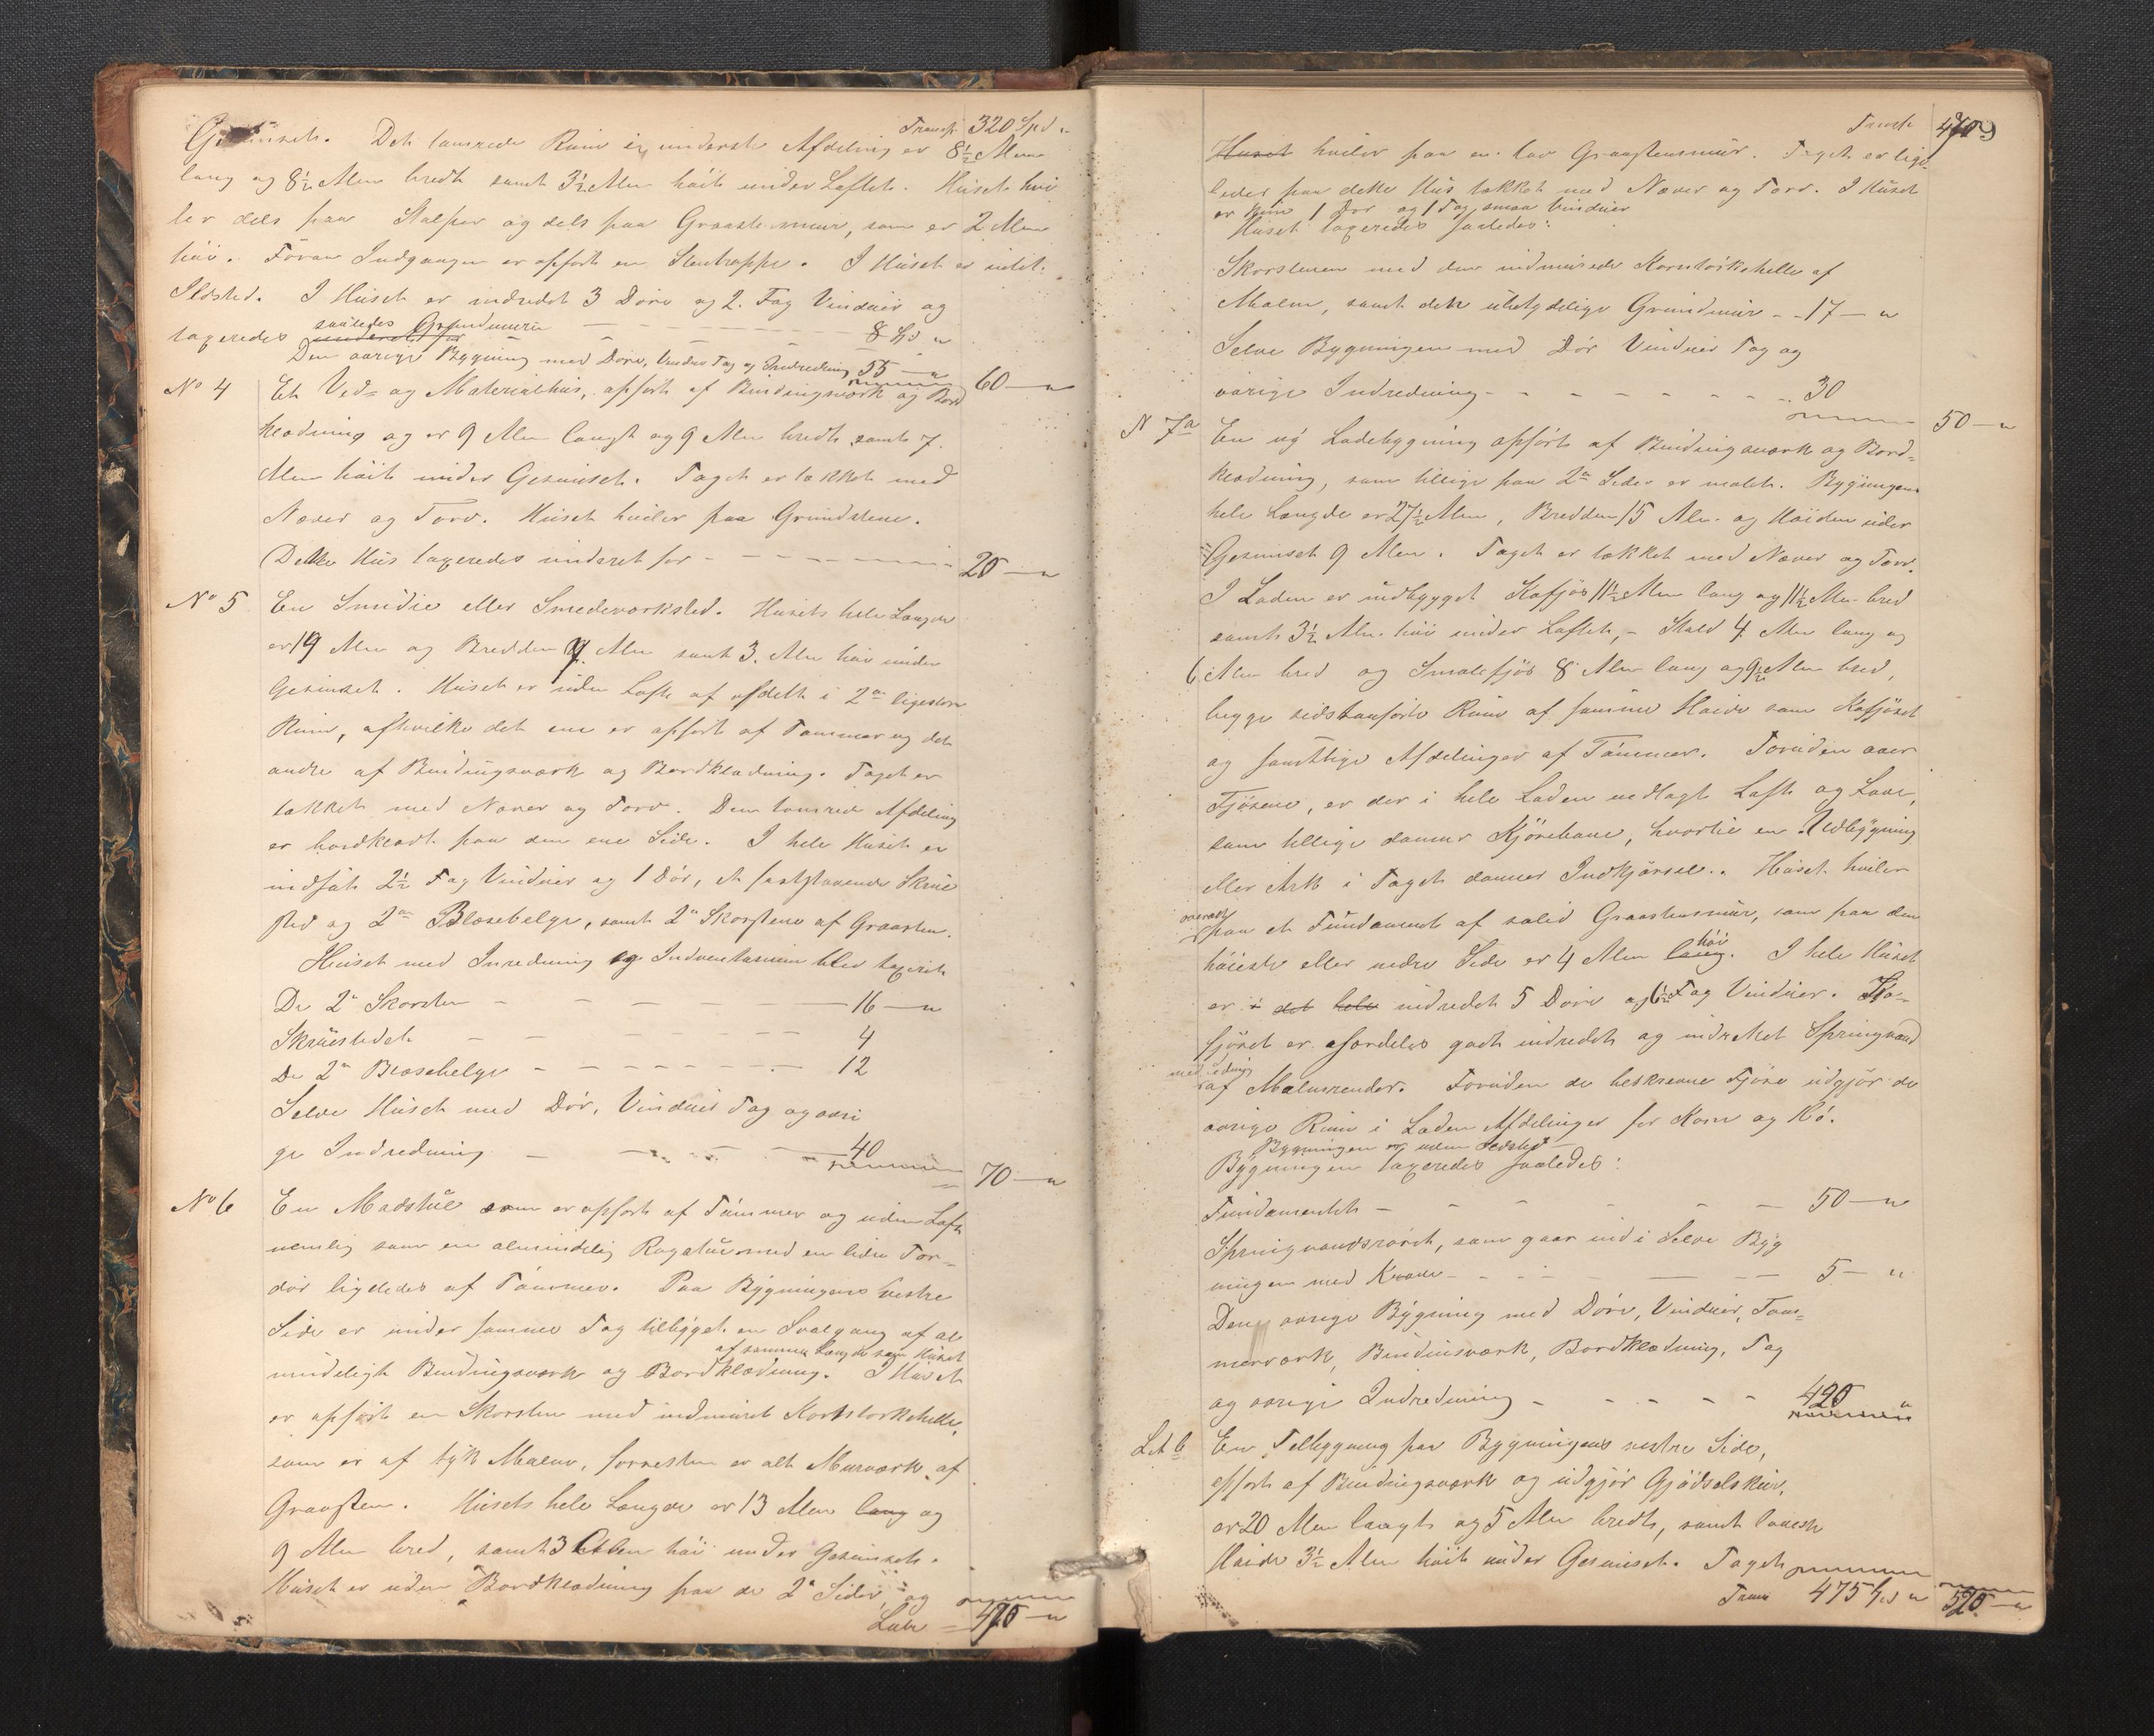 Transp. 320 Spd "
Gesimset. Det tømrede Rum i underste Afdeling er 8½ Alen
lang og 8½ Alen bredt samt 3½ Alen høit under Loftet. Huset hvi
ler dels paa Stolper og dels paa Graastensmuur, som er 2 Alen
høi. Foran Indgangen er opført en Stentrappe. I Huset er intet
Ildsted. I Huset er indredet 3 Døre og 2 Fag Vinduer og
taxeredes saaledes Grundmuren — 8 Spd "
Den øvrige Bygning med Døre, Vinduer Tag og Indredning 55 — "
60 — "
No 4 Et Ved- og Materialhus, opført af Bindingsværk og Bord
klædning og er 9 Alen langt og 9 Alen bredt samt 7
Alen høit under Gesimset. Taget er tækket med
Næver og Torv. Huset hviler paa Grundstene.
Dette Hus taxeredes underet for — 20 — "
No 5 En Smidie eller Smedeværksted. Husets hele Længde
er 19 Alen og Bredden 9 Alen samt 3 Alen høi under
Gesimset. Huset er uden Loft af afdelt i 2de ligestore
Rum, afhvilke det ene er opført af Tømmer og det
andre af Bindingsværk og Bordklædning. Taget er
tækket med Næver og Torv. Den tømrede Afdeling
er bordklædt paa den ene Side. I hele Huset er
indsat 2½ Fag Vinduer og 1 Dør, et faststaaende Skrue
sted og 2de Blæsebelge, samt 2de Skorstene af Graasten.
Huset med Inredning og Indventarium blev taxerit
De 2de Skorsten — 16 — "
Skruestedet — 4
De 2de Blæsebelge — 12
Selve Huset med Dør, Vinduer Tag og øvri
ge Indredning — 40
70 — "
No 6 En Madstue som er opført af Tømmer og uden Loft
nemlig som en almindelig Røgstue med en liden For-
dør ligeledes af Tømmer. Paa Bygningens vestre
Side er under samme Tag tilbygget en Svalgang af al
af samme Længde som Huset
mindeligt Bindingsværk og Bordklædning. I Huset
er opført en Skorsten med indmuret Korntørkehelle,
som er af tyk Malm, forresten er alt Murværk af
Graasten. Husets hele Længde er 13 Alen lang og
9 Alen bred, samt 3 Alen høi under Gesimset.
Huset er uden Bordklædning paa de 2de Sider, og
Latr = 470 — "
Transp. 470
9
Huset hviler paa en lav Graastensmuur. Taget er lige-
ledes paa dette Hus tækket med Næver og Torv. I Huset
er kun 1 Dør og 1 Fag smaa Vinduer
Huset taxeredes saaledes:
Skorstenen med den indmurede Korntørkehelle af
Malm, samt den ubetydelige Grundmuur — 17 — "
Selve Bygningen med Dør Vinduer Tag og
øvrige Indredning — 30
50 — "
N 7a En ny Ladebygning opført af Bindingsværk og Bord-
klædning, som tillige paa 2de Sider er malet. Bygningens
hele Længde er 27½ Alen, Bredden 15 Alen og Høiden under
Gesimset 9 Alen. Taget er tækket med Næver og Torv.
I Laden er indbygget Kofjøs 11½ Alen lang og 11½ Alen bred
samt 3½ Alen høi under Loftet, - Stald 4 Alen lang og
6 Alen bred og Smalefjøs 8 Alen lang og 9½ Alen bred,
begge sidstanførte Rum af samme Høide som Kofjøset
og samtlige Afdelinger af Tømmer. Foruden over
Fjøsene, er der i hele Laden indlagt Loft og Lave,
som tillige danner Kjørebane, hvortil en Udbygning
eller Ark i Taget danner Indkjørsel. Huset hviler
overalt
paa et Fundament af solid Graastensmuur, som paa den
høieste eller nedre Side er 4 Alen lang høi. I hele Huset
er i det hele indredet 5 Døre og 6½ Fag Vinduer. Ko-
fjøset er særdeles godt indredet og indrettet Springvand
med Ledning
af Malmrender. Foruden de beskrevne Fjøse udgjør de
øvrige Rum i Laden Afdelinger for Korn og Hø.
Bygningen er uden Ildsted
Bygningen taxeredes saaledes:
Fundamentet — 50 — "
Springvandsrøret, som gaar ind i Selve Byg
ningen med Krane — 5 — "
Den øvrige Bygning med Døre, Vinduer, Tøm-
merværk, Bindinsværk, Bordklædning, Tag
og øvrige Indredning — 420 "
Lit b En Tilbygning paa Bygningens vestre Side,
opført af Bindingsværk og udgjør Gjødselskur,
er 20 Alen langt og 5 Alen bredt, samt laveste
Høide 3½ Alen høit under Gesimset. Taget
Trans 475 Spd " 520 — "